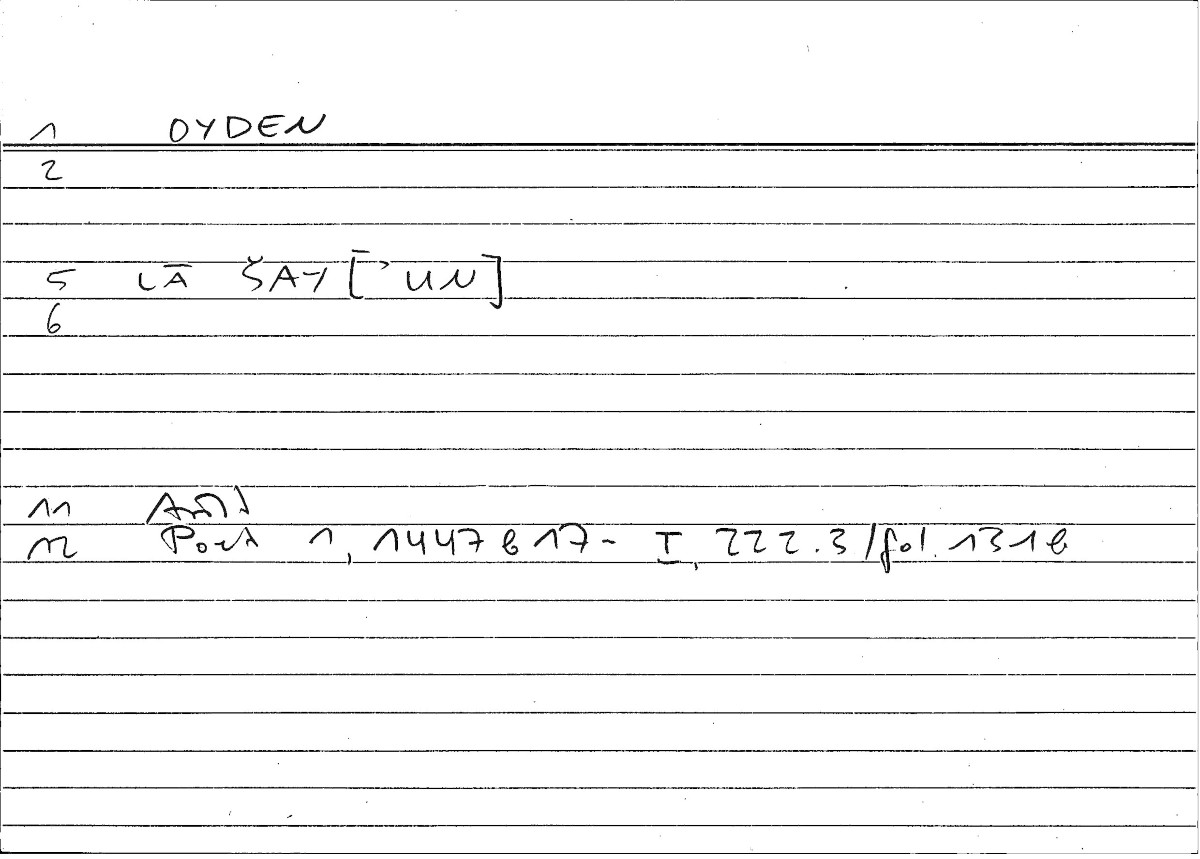 1 OYDEN
2
5 LĀ ŠAY[ʾUN]
6
11
12 Poet 1, 1447 b 17 - I, 222.3 / fol. 131b